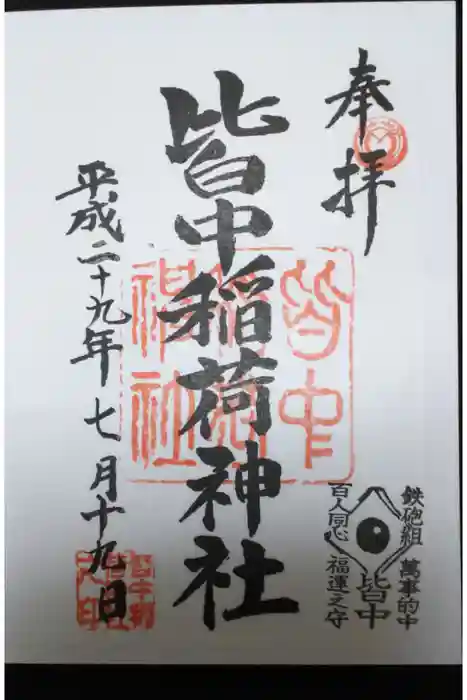 奉拝
皆中稲荷神社
平成二十九年七月十九日
皆中
稲荷
神社
鉄砲組
萬事的中
百人同心
福運之守
皆中